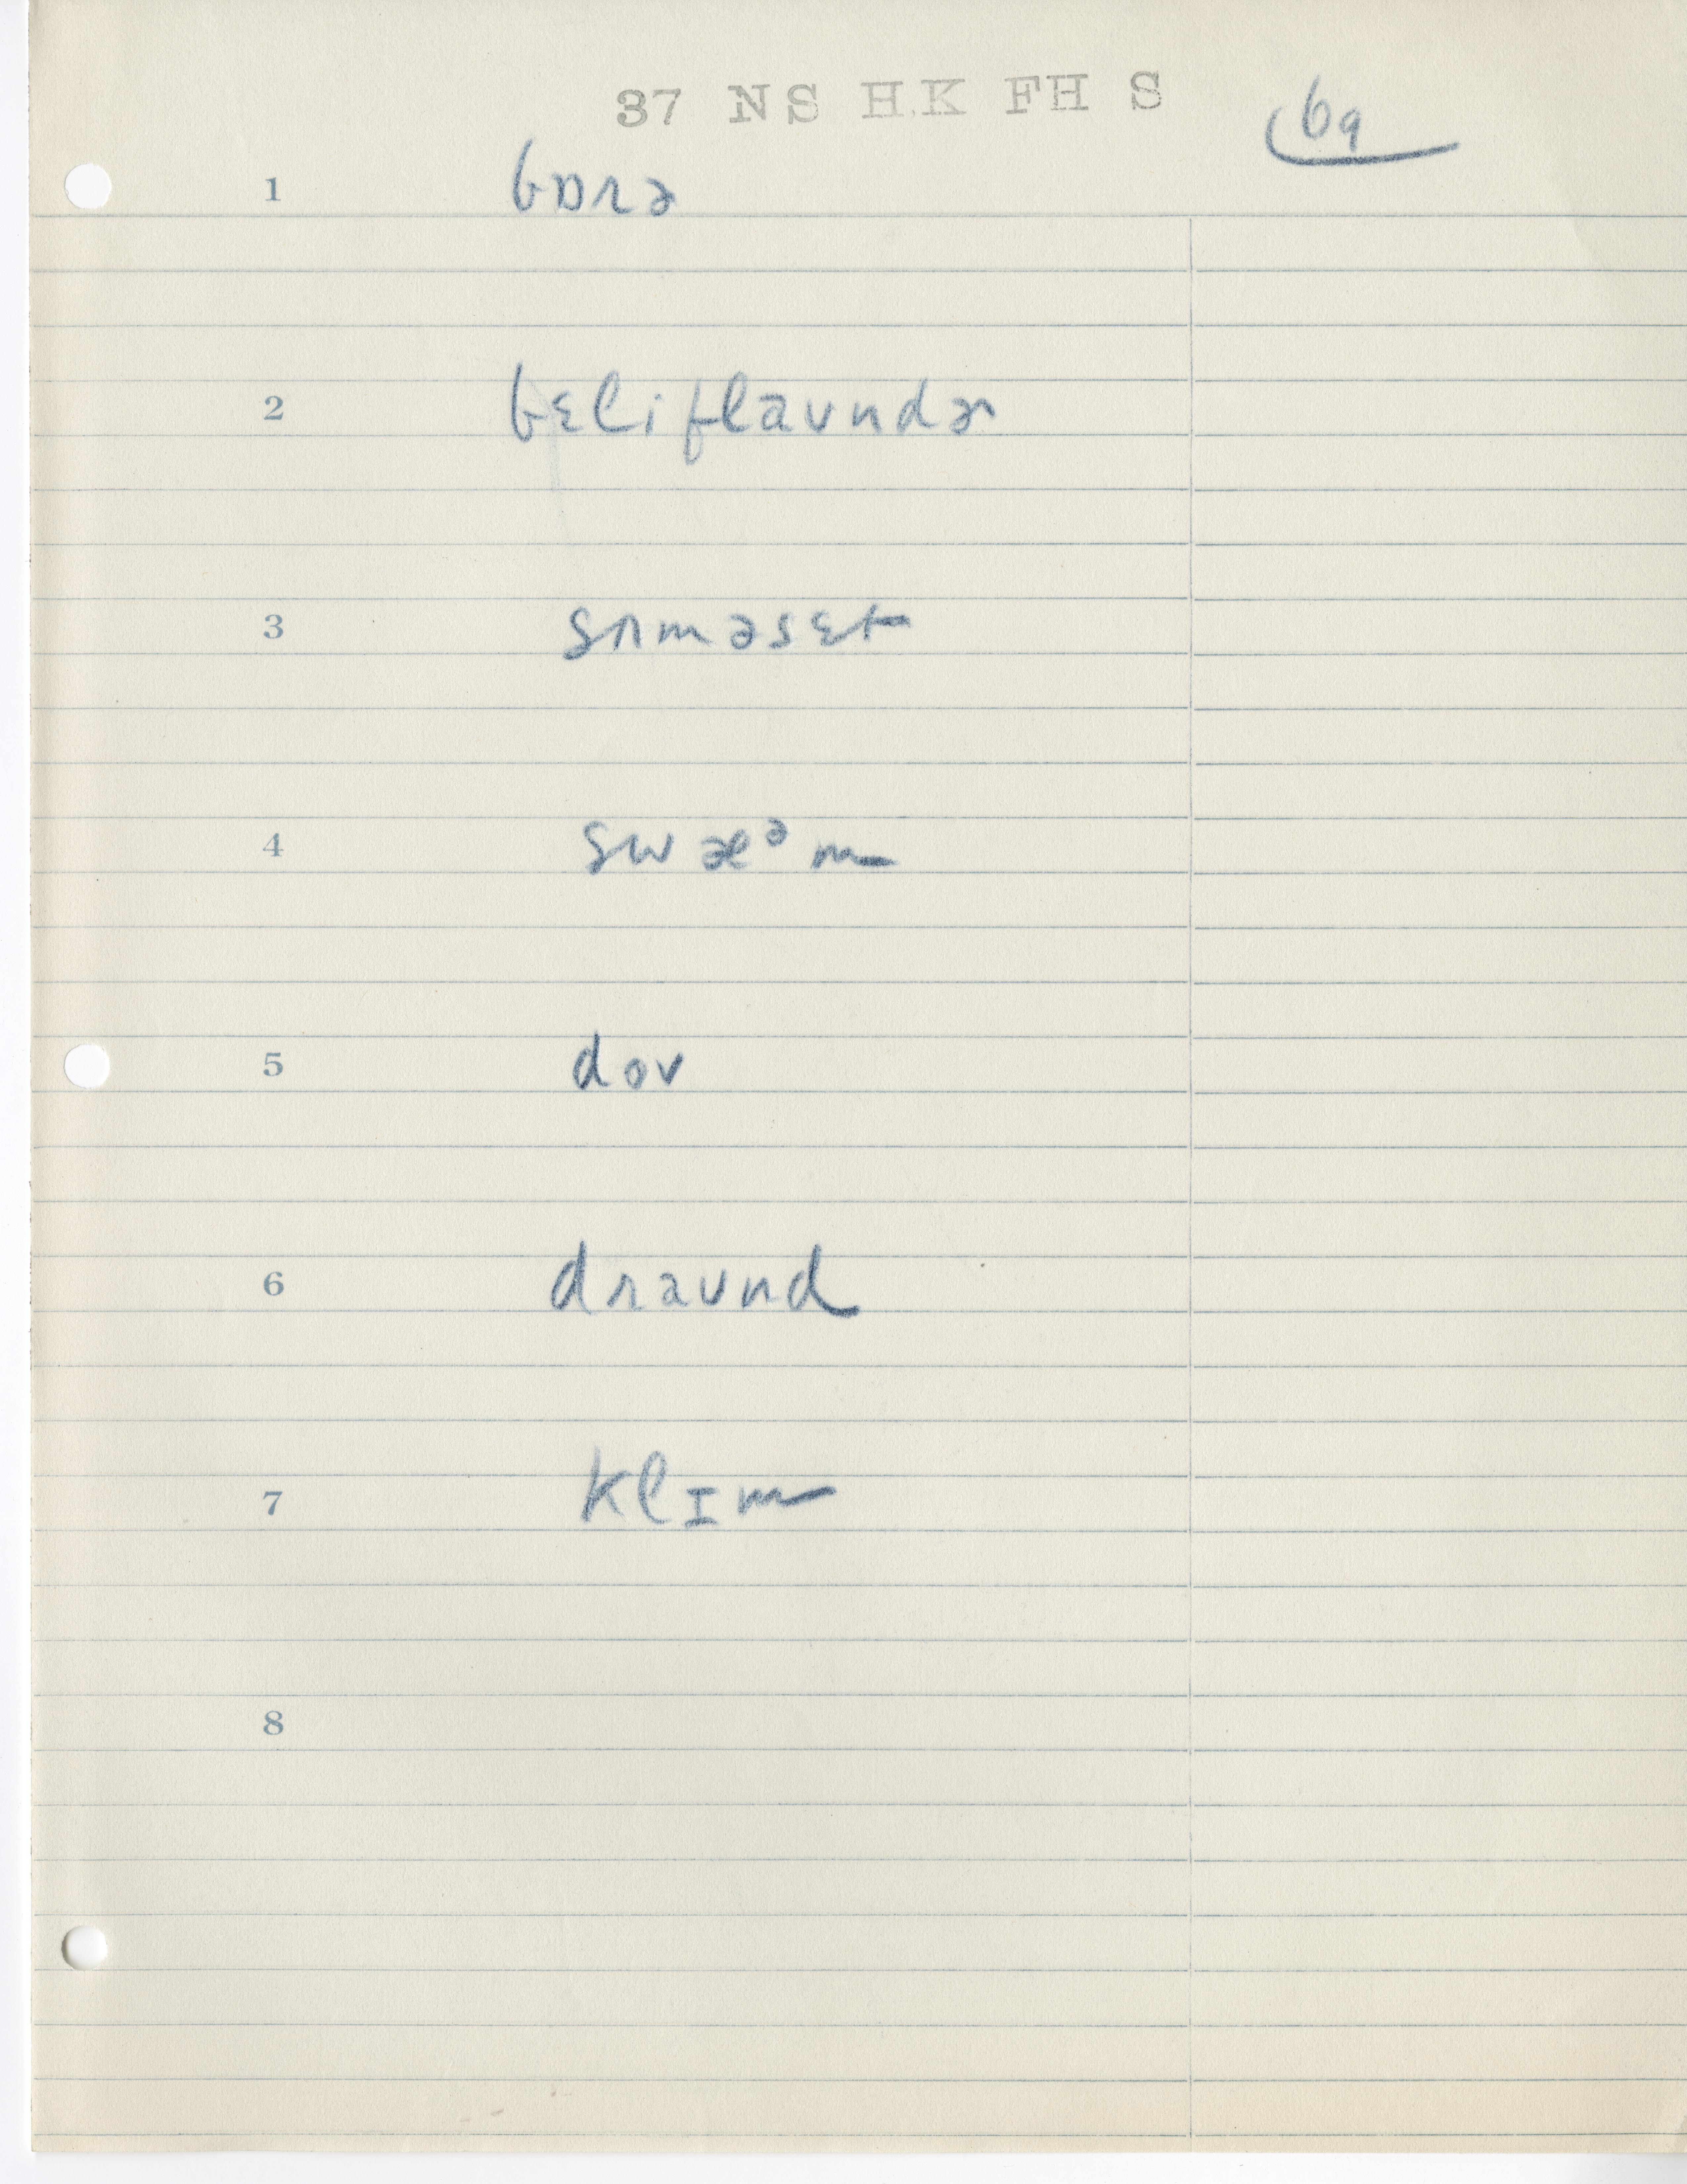 37 NS HK FH S
69
1 bɒrə
2 bɛliflaundɚ
3 sʌməsɛt
4 swæᵊm
5 dov
6 draund
7 klɪm
8